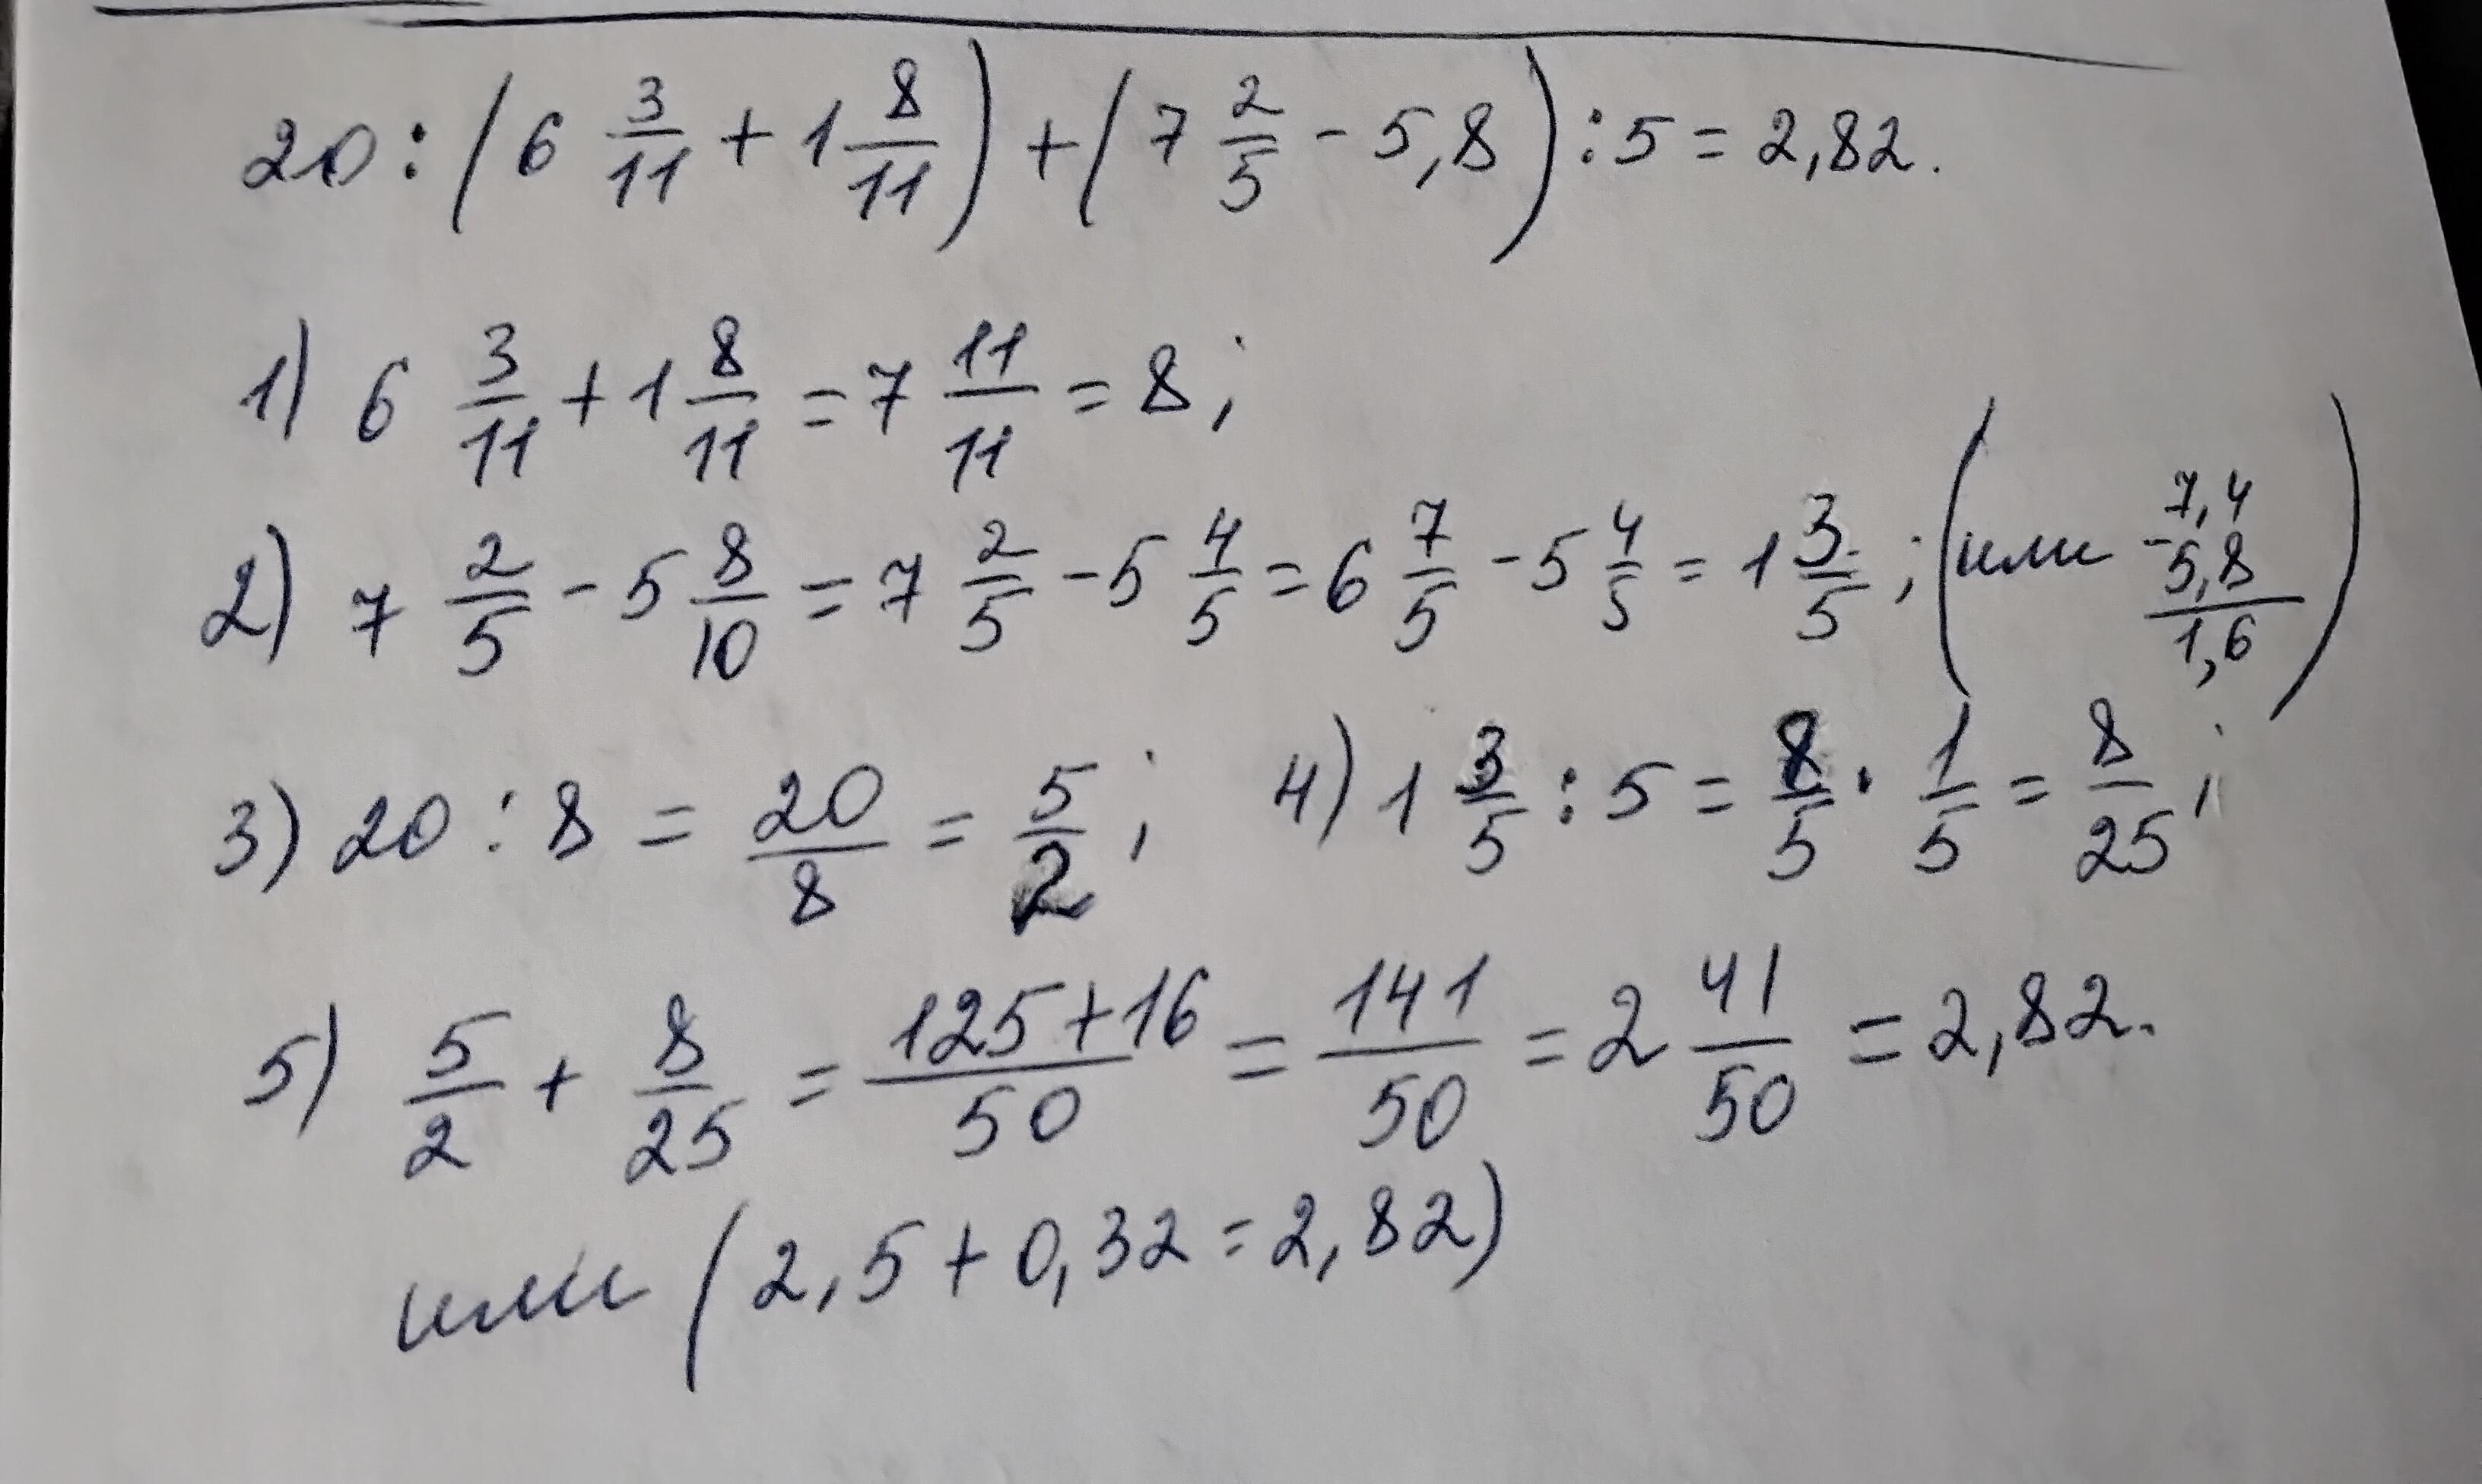 20 : (6 3/11 + 1 8/11) + (7 2/5 - 5,8) : 5 = 2,82.
1) 6 3/11 + 1 8/11 = 7 11/11 = 8;
2) 7 2/5 - 5 8/10 = 7 2/5 - 5 4/5 = 6 7/5 - 5 4/5 = 1 3/5; (или 7,4 - 5,8 1,6)
3) 20 : 8 = 20/8 = 5/2; 4) 1 3/5 : 5 = 8/5 · 1/5 = 8/25;
5) 5/2 + 8/25 = (125+16)/50 = 141/50 = 2 41/50 = 2,82.
или (2,5 + 0,32 = 2,82)